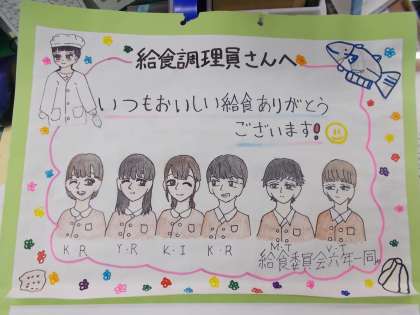 給食調理員さんへ
いつもおいしい給食ありがとう
ございます!
K R Y・R K・I K・R M・T Y・T
給食委員会六年一同